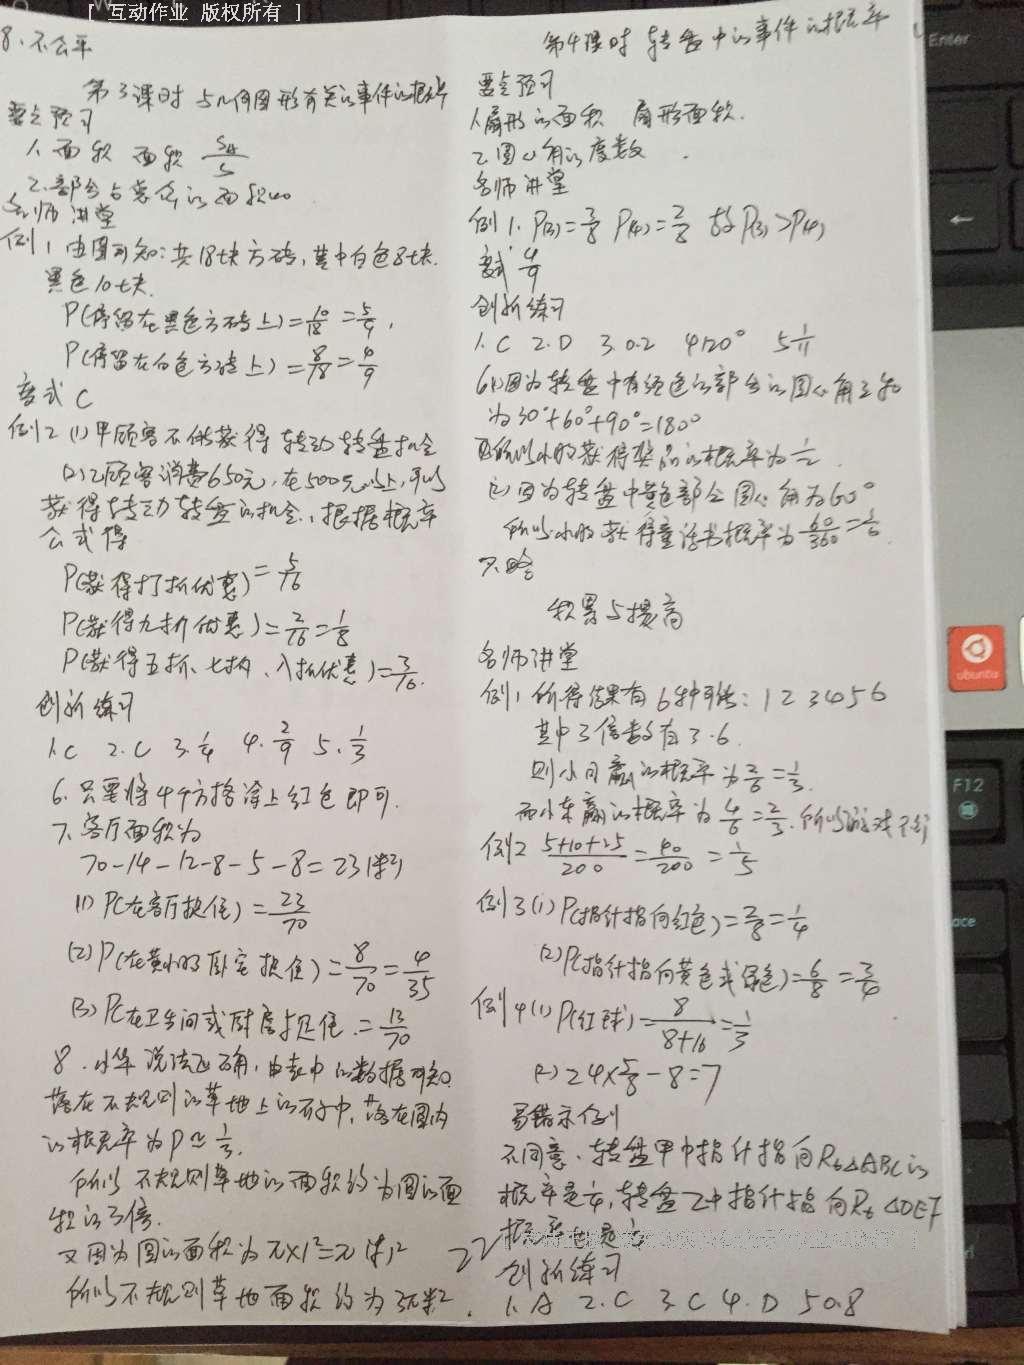 [ 互动作业 版权所有 ]
8. 不公平
第3课时 与几何图形有关的事件的概率
要点预习
1. 面积 面积 S_A/S
2. 部分占总体的面积
名师讲堂
例1 由图可知: 共18块方砖, 其中白色8块.
黑色10块.
P(停留在黑色方砖上)=10/18=5/9,
P(停留在白色方砖上)=8/18=4/9
变式 C
例2 (1) 甲顾客不能获得转动转盘机会
(2) 乙顾客消费650元, 在500元以上, 可以
获得转动转盘的机会, 根据概率
公式得
P(获得打折优惠)=5/16
P(获得九折优惠)=2/16=1/8
P(获得五折、七折、八折优惠)=3/16.
创新练习
1. C 2. C 3. 1/4 4. 2/9 5. 1/3
6. 只要将4个方格涂上红色即可.
7. 客厅面积为
70-14-12-8-5-8=23(米²)
(1) P(在客厅捉住)=23/70
(2) P(在黄小明卧室捉住)=8/70=4/35
(3) P(在卫生间或厨房捉住)=13/70
8. 小华说法正确, 由表中的数据可知
落在不规则的草地上的石子中, 落在圆内
的概率为P≈1/3.
所以不规则草地的面积约为圆的面
积的3倍.
又因为圆的面积为π×1²=π(米)²
所以不规则草地面积约为3π米².
22
第4课时 转盘中的事件的概率
要点预习
1. 扇形的面积 扇形面积.
2. 圆心角的度数
名师讲堂
例1. P(3)=3/8 P(4)=2/8 故P(3)>P(4)
变式 4/9
创新练习
1. C 2. D 3. 0.2 4 120° 5 1/11
6(1) 因为转盘中有颜色的部分的圆心角之和
为30°+60°+90°=180°
所以小明获得奖品的概率为1/2.
(2) 因为转盘中黄色部分圆心角为60°
所以小明获得童话书概率为60/360=1/6
7. 略
积累与提高
名师讲堂
例1 所得结果有6种可能: 1 2 3 4 5 6
其中3倍数有3.6.
则小月赢的概率为2/6=1/3.
而小东赢的概率为4/6=2/3. 所以游戏不公
例2 5+10+25/200=40/200=1/5
例3 (1) P(指针指向红色)=2/8=1/4
(2) P(指针指向黄色或绿色)=6/8=3/4
例4 (1) P(红球)=8/8+16=1/3
(2) 24×5/8-8=7
易错示例
不同意. 转盘甲中指针指向Rt△ABC的
概率是1/4, 转盘乙中指针指向Rt△DEF
概率也是
创新练习
1. A 2. C 3. C 4. D 5 0.8
Enter
ubuntu
F12
Ctrl